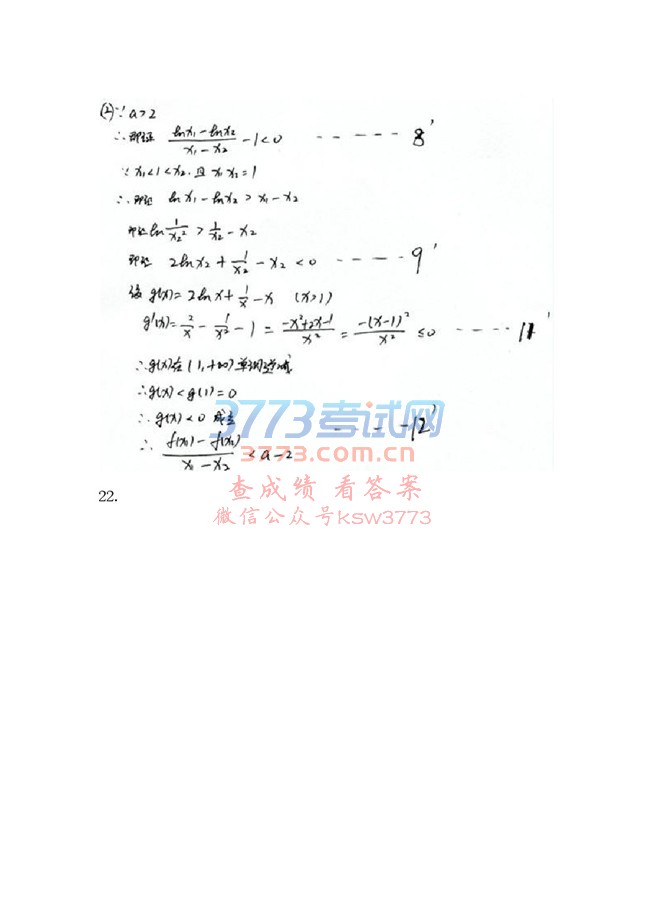 (2) ∵ a>2
∴ 即证 (lnx₁-lnx₂)/(x₁-x₂) -1<0 ------ 8'
∵ x₁<1<x₂. 且 x₁x₂=1
∴ 即证 lnx₁-lnx₂ > x₁-x₂
即证 ln 1/x₂² > 1/x₂ - x₂
即证 2lnx₂ + 1/x₂ - x₂ < 0 ----- 9'
g(x)= 2lnx + 1/x - x (x>1)
g'(x)= 2/x - 1/x² - 1 = (-x²+2x-1)/x² = -(x-1)²/x² ≤0 ------ 11'
∴ g(x)在(1,+∞)单调递减
∴ g(x) < g(1) = 0
∴ g(x) < 0 成立
∴ (f(x₁)-f(x₂))/(x₁-x₂) < a-2 ---- 12'
3773考试网
3773.com.cn
22.
查成绩 看答案
微信公众号ksw3773